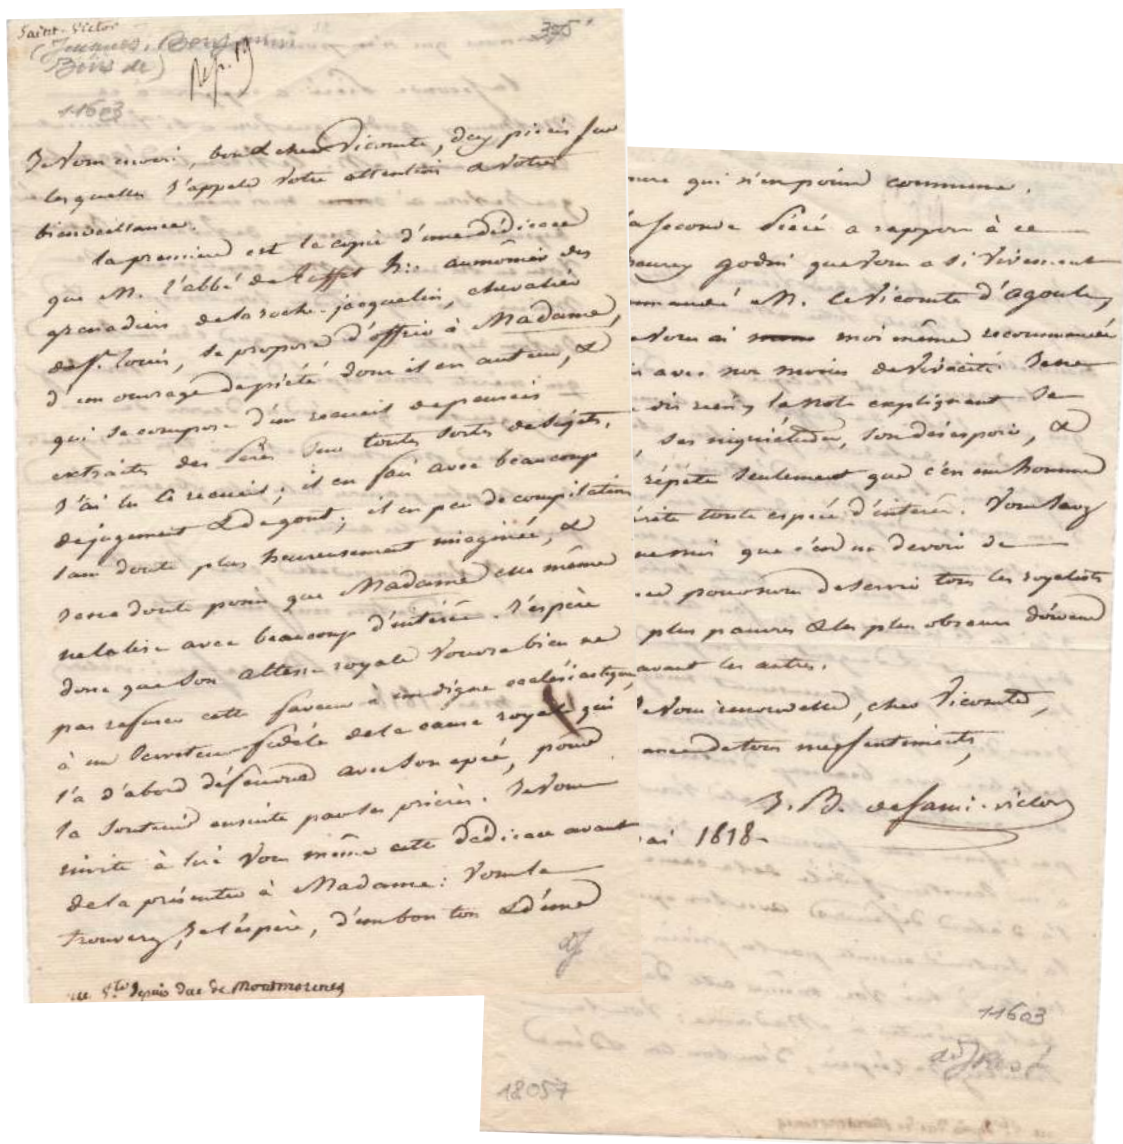 Saint-Victor
(Jacques, Benjamin
Bins de)
Rep. 19
375
11603
Je vous envoie, bon & cher Vicomte, deux pièces sur
lesquelles j'appele votre attention & votre
bienveillance.
la premiere est la copie d'une dédicace
que M. l'abbé de aumônier des
grenadiers de la roche-jacquelin, chevalier
de St. louis, se propose d'offrir à Madame,
d'un ouvrage de piété dont il est auteur, &
qui se compose d'un recueil de pensées
extraites des Pères sur toutes sortes de sujets.
J'ai lu le recueil; il est fait avec beaucoup
de jugement & de gout; il est peu de compilation
sans doute plus heureusement imaginée, &
je ne doute point que Madame elle même
ne la lise avec beaucoup d'intérêt. J'espère
donc que son altesse royale voudra bien ne
pas refuser cette faveur à un digne ecclésiastique,
à un serviteur fidèle de la cause royale qui
l'a d'abord défendue avec son epée, pour
la soutenir ensuite par ses prières. Je vous
invite à lire vous même cette dédicace avant
de la présenter à Madame: vous la
trouverez, je l'espère, d'un bon ton & d'une
Vte depuis duc de Montmorency
qui n'est point commune.
la seconde Pièce a rapport à ce
godin que vous a si vivement
mmandé M. le Vicomte d'agoult,
vous ai moi même recommandé
avec non moins de vivacité. Je ne
dis rien; la note expliquant
ses inquiétudes, son désespoir, &
répète seulement que c'est un homme
érite toute espèce d'intérêt. Vous savez
que c'est un devoir de
pouvoir de servir tous les royalistes
plus pauvres & les plus obscurs doivent
avant les autres.
Je vous renouvelle, cher Vicomte,
ance de tous mes sentiments,
J. B. de Saint-victor
ai 1818.
11603
18057